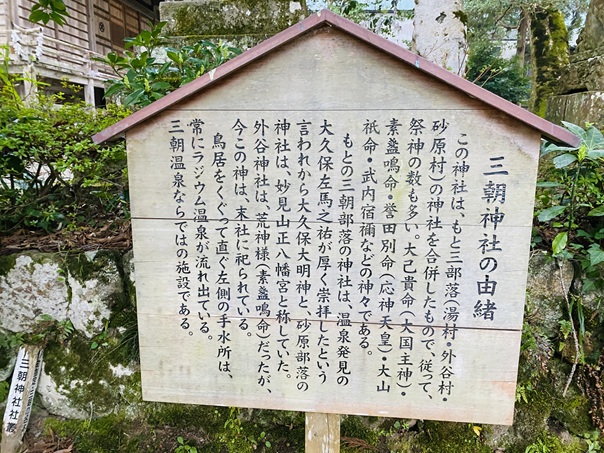 三朝神社の由緒
この神社は、もと三部落(湯村・外谷村・
砂原村)の神社を合併したもので、従って、
祭神の数も多い。大己貴命(大国主神)・
素盞鳴命・誉田別命(応神天皇)・大山
祇命・武内宿禰などの神々である。
もとの三朝部落の神社は、温泉発見の
大久保左馬之祐が厚く崇拝したという
言われから大久保大明神と、砂原部落の
神社は、妙見山正八幡宮と称していた。
外谷神社は、荒神様(素盞鳴命)だったが、
今この神は、末社に祀られている。
鳥居をくぐって直ぐ左側の手水所は、
常にラジウム温泉が流れ出ている。
三朝温泉ならではの施設である。
三朝神社社叢